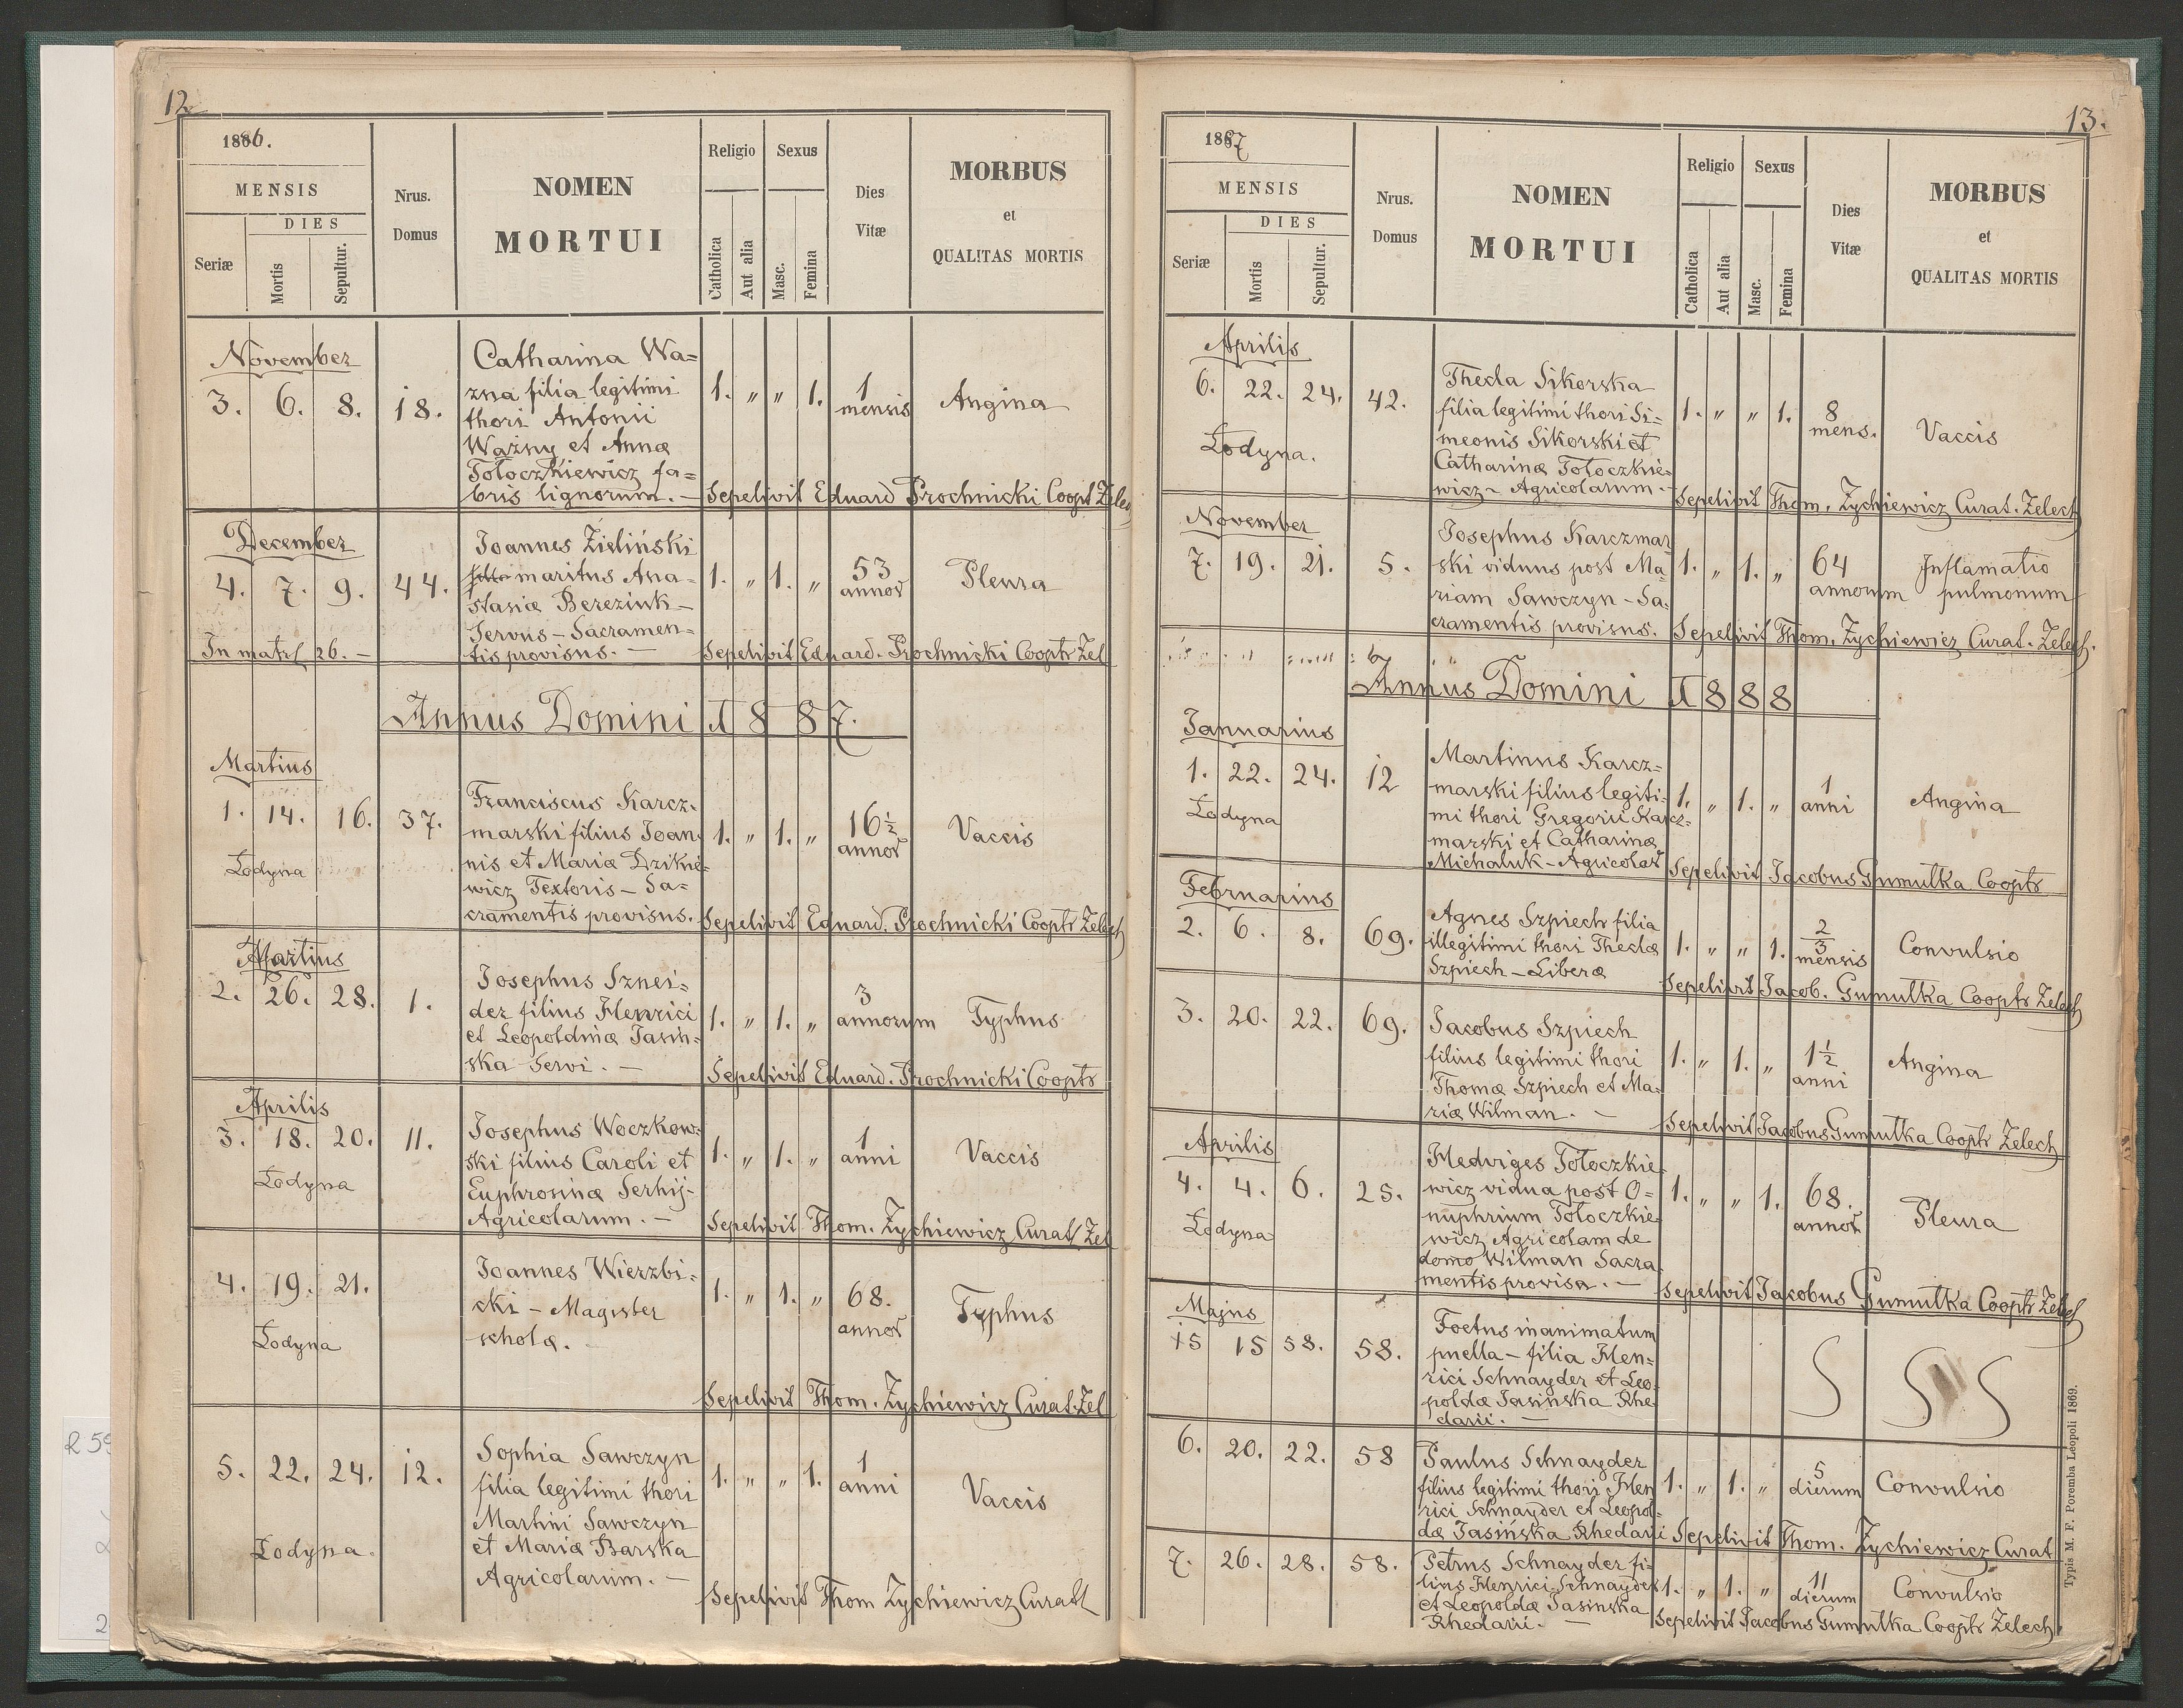 12.
1886.
MENSIS
DIES
Seriæ
Mortis
Sepultur.
Nrus.
Domus
NOMEN
MORTUI
Religio
Catholica
Aut alia
Sexus
Masc.
Femina
Dies
Vitæ
MORBUS
et
QUALITAS MORTIS
November
3. 6. 8. 18.
Catharina Wa=
zna filia legitimi
thori Antonii
Ważny et Annæ
Tołoczkiewicz fa=
bris lignorum. —
1. „ „ 1. 1 mensis Angina
Sepelivit Eduard Prochnicki Coopt Żelec
December
4. 7. 9. 44.
In matrl 26. —
Joannes Zieliński
maritus Ana=
stasiæ Bereziuk —
Servus — Sacramen=
tis provisus. —
1. „ 1. „ 53 annor Pleura
Sepelivit Eduard. Prochnicki Cooptr Żel
Annus Domini 1887.
Martius
1. 14. 16. 37.
Łodyna
Franciscus Karcz=
marski filius Joan=
nis et Mariæ Dzikie=
wicz Textoris — Sa=
cramentis provisus.
1. „ 1. „ 16½ annor Vaccis
Sepelivit Eduard. Prochnicki Cooptr Żelech
Martius
2. 26. 28. 1.
Josephus Sznei=
der filius Henrici
et Leopoldinæ Jasin=
ska Servi. —
1. „ 1. „ 3 annorum Typhus
Sepelivit Eduard. Prochnicki Cooptr
Aprilis
3. 18. 20. 11.
Łodyna
Josephus Woczkow=
ski filius Caroli et
Euphrosinæ Serhij-
Agricolarum. —
1. „ 1. „ 1 anni Vaccis
Sepelivit Thom. Zychiewicz Curatl Żel
4. 19. 21.
Łodyna
Joannes Wierzbi=
cki — Magister
scholæ.
1. „ 1. „ 68. annor Typhus
Sepelivit Thom. Zychiewicz Curat. Żel
5. 22. 24. 12.
Łodyna.
Sophia Sawczyn
filia legitimi thori
Martini Sawczyn
et Mariæ Barska
Agricolarum. —
1. „ „ 1. 1 anni Vaccis
Sepelivit Thom Zychiewicz Curatl
13.
1887
MENSIS
DIES
Seriæ
Mortis
Sepultur.
Nrus.
Domus
NOMEN
MORTUI
Religio
Catholica
Aut alia
Sexus
Masc.
Femina
Dies
Vitæ
MORBUS
et
QUALITAS MORTIS
Aprilis
6. 22. 24. 42.
Łodyna.
Thecla Sikorska
filia legitimi thori Si=
meonis Sikorski et
Catharinæ Tołoczkie=
wicz — Agricolarum —
1. „ „ 1. 8 mens. Vaccis
Sepelivit Thom. Zychiewicz Curat. Żelech
November
7. 19. 21. 5.
Josephus Karczmar
ski viduus post Ma=
riam Sawczyn — Sa=
cramentis provisus.
1. „ 1. „ 64 annorum Inflamatio pulmonum
Sepelivit Thom. Zychiewicz Curat. Żelech.
Annus Domini 1888
Januarius
1. 22. 24. 12
Łodyna
Martinus Karcz=
marski filius legiti=
mi thori Gregorii Karcz=
marski et Catharinæ
Michaluk — Agricolar
1. „ 1. „ 1 anni Angina
Sepelivit Jacobus Gumułka Cooptr
Februarius
2. 6. 8. 69.
Agnes Szpiech filia
illegitimi thori Theclæ
Szpiech — Liberæ
1. „ „ 1. 2/3 mensis Convulsio
Sepelivit Jacob. Gumułka Cooptr Żelech
3. 20. 22. 69.
Jacobus Szpiech
filius legitimi thori
Thomæ Szpiech et Ma=
riæ Wilman. —
1. „ 1. „ 1½ anni Angina
Sepelivit Jacobus Gumułka Cooptr Żelech
Aprilis
4. 4. 6. 25.
Łodyna
Hedviges Tołoczkie=
wicz vidua post O=
nuphrium Tołoczkie=
wicz Agricolam de
domo Wilman Sacra=
mentis provisa. —
1. „ „ 1. 68. annor Pleura
Sepelivit Jacobus Gumułka Cooptr Żelech
Majus
15 15 58. 58.
Foetus inanimatum
puella — filia Hen=
rici Schnayder et Leo=
poldæ Jasińska Rhe=
darii. —
6. 20. 22. 58
Paulus Schnayder
filius legitimi thori Hen
rici Schnayder et Leopol=
dæ Jasińska Rhedarii
1. „ 1. „ 5 dierum Convulsio
Sepelivit Thom. Zychiewicz Curat
7. 26. 28. 58.
Petrus Schnayder fi=
lius Henrici Schnayder
et Leopoldæ Jasinska
Rhedarii. —
1. „ 1. „ 11 dierum Convulsio
Sepelivit Jacobus Gumułka Cooptr Żelech
Typis M. F. Poremba Leopoli 1869.
R 59